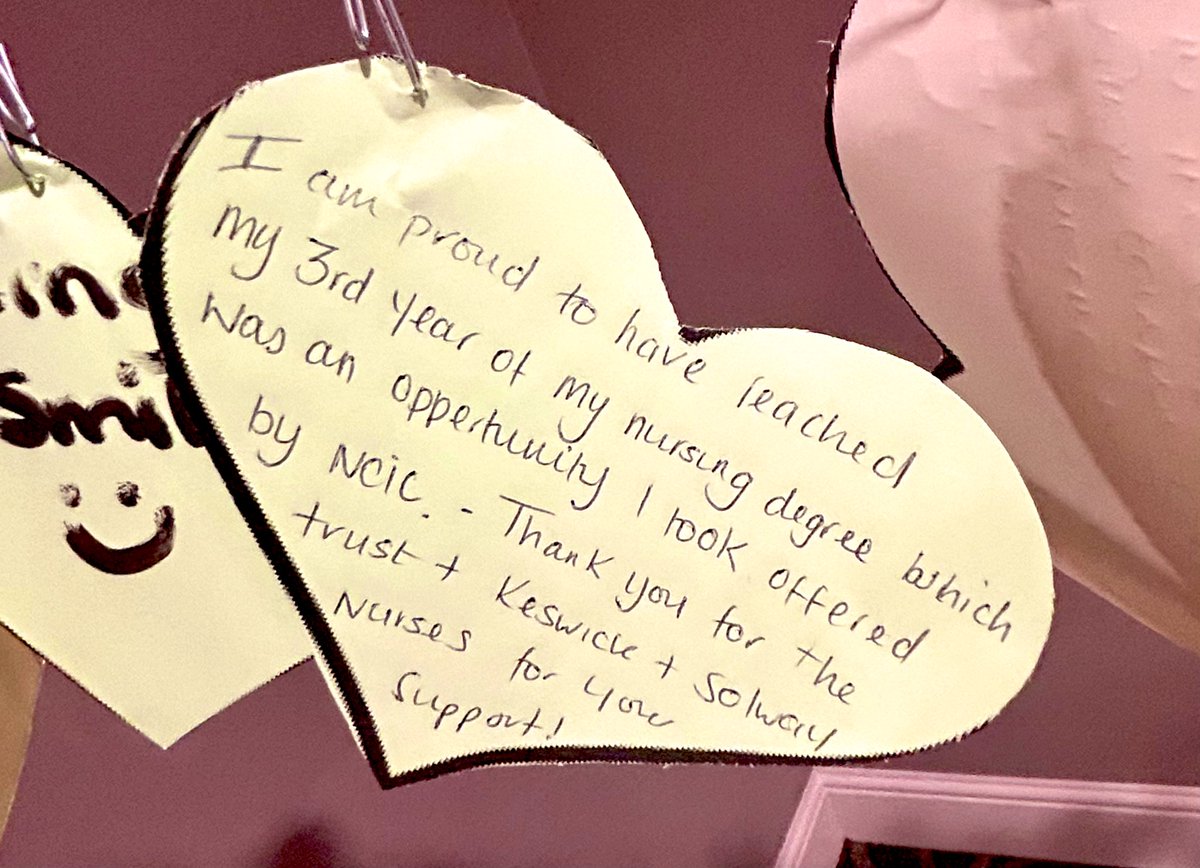 Smil
I am proud to have reached
my 3rd year of my nursing degree which
was an oppertunity I took offered
by NCIC. - Thank you for the
trust + Keswick + Solway
Nurses for your
support!